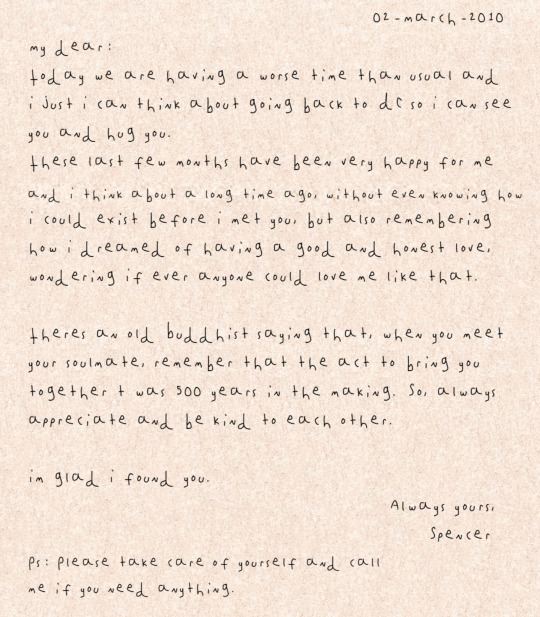 02-march-2010
my dear:
today we are having a worse time than usual and
i just i can think about going back to dc so i can see
you and hug you.
these last few months have been very happy for me
and i think about a long time ago, without even knowing how
i could exist before i met you, but also remembering
how i dreamed of having a good and honest love,
wondering if ever anyone could love me like that.
theres an old buddhist saying that, when you meet
your soulmate, remember that the act to bring you
together t was 500 years in the making. So, always
appreciate and be kind to each other.
im glad i found you.
Always yours,
Spencer
Ps: Please take care of yourself and call
me if you need anything.